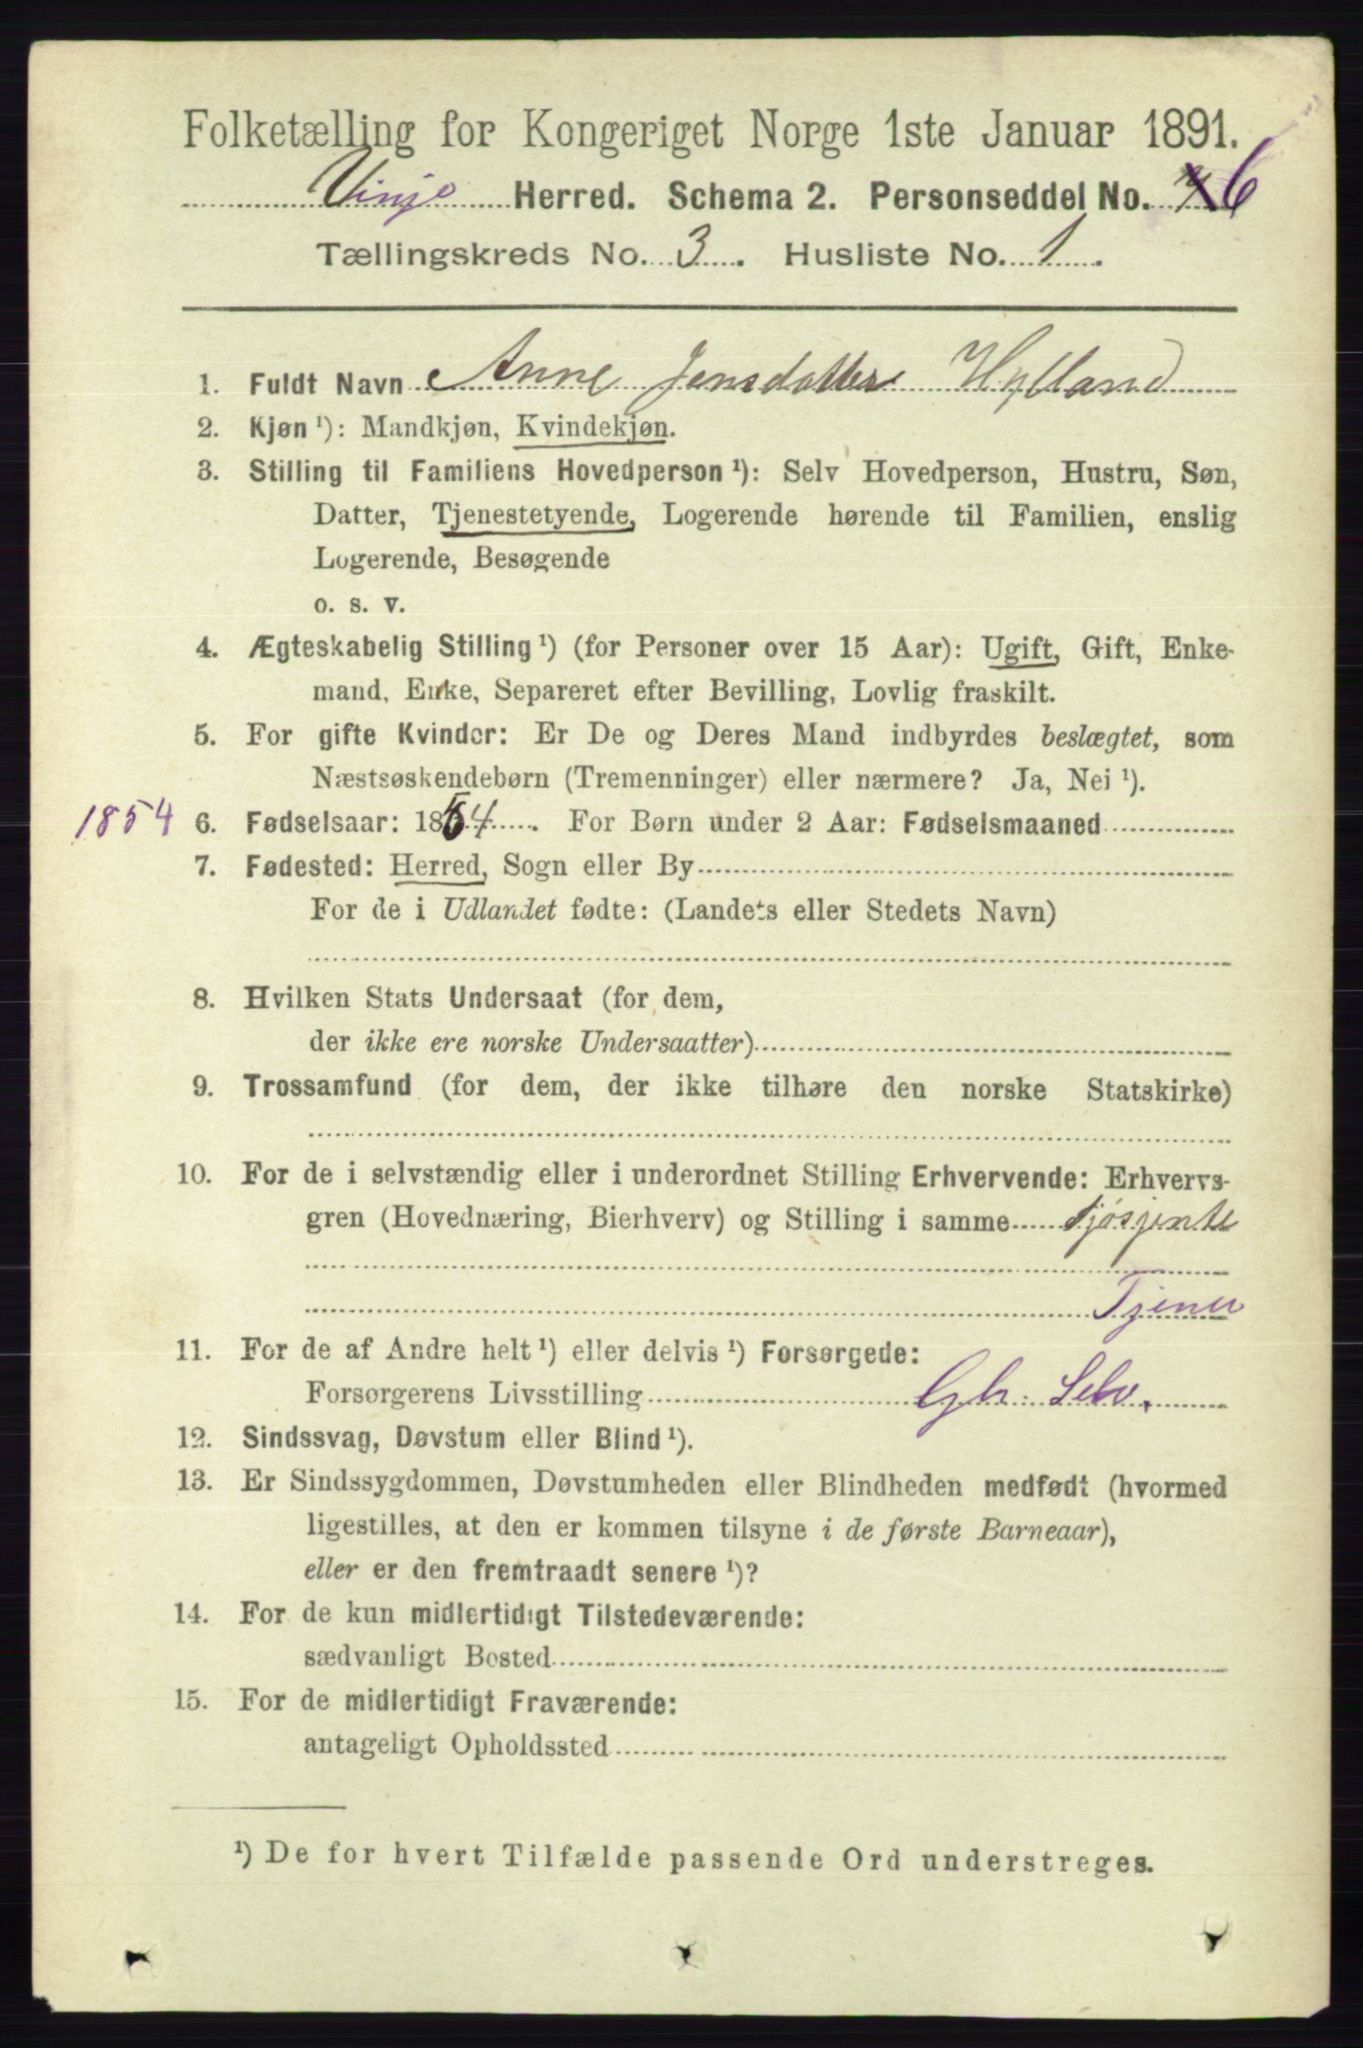 Folketælling for Kongeriget Norge 1ste Januar 1891.
Vinje Herred. Schema 2. Personseddel No. 6
Tællingskreds No. 3. Husliste No. 1.
1. Fuldt Navn Anne Jensdatter Hylland
2. Kjøn ¹): Mandkjøn, Kvindekjøn.
3. Stilling til Familiens Hovedperson ¹): Selv Hovedperson, Hustru, Søn,
Datter, Tjenestetyende, Logerende hørende til Familien, enslig
Logerende, Besøgende
o. s. v.
4. Ægteskabelig Stilling ¹) (for Personer over 15 Aar): Ugift, Gift, Enke-
mand, Enke, Separeret efter Bevilling, Lovlig fraskilt.
5. For gifte Kvinder: Er De og Deres Mand indbyrdes beslægtet, som
Næstsøskendebørn (Tremenninger) eller nærmere? Ja, Nei ¹).
1854 6. Fødselsaar: 1854. For Børn under 2 Aar: Fødselsmaaned
7. Fødested: Herred, Sogn eller By
For de i Udlandet fødte: (Landets eller Stedets Navn)
8. Hvilken Stats Undersaat (for dem,
der ikke ere norske Undersaatter)
9. Trossamfund (for dem, der ikke tilhøre den norske Statskirke)
10. For de i selvstændig eller i underordnet Stilling Erhvervende: Erhvervs-
gren (Hovednæring, Bierhverv) og Stilling i samme Fjøsjente
Tjener
11. For de af Andre helt ¹) eller delvis ¹) Forsørgede:
Forsørgerens Livsstilling Gbr. Selv.
12. Sindssvag, Døvstum eller Blind ¹).
13. Er Sindssygdommen, Døvstumheden eller Blindheden medfødt (hvormed
ligestilles, at den er kommen tilsyne i de første Barneaar),
eller er den fremtraadt senere ¹)?
14. For de kun midlertidigt Tilstedeværende:
sædvanligt Bosted
15. For de midlertidigt Fraværende:
antageligt Opholdssted
¹) De for hvert Tilfælde passende Ord understreges.